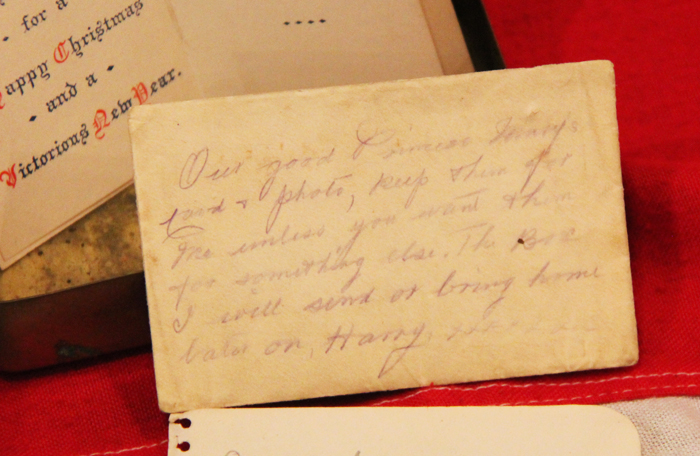 for a
appy Christmas
and a
Victorious New Year.
Our good Princess Mary's
card & photo, keep them for
me unless you want them
for something else. The Box
I will send or bring home
later on, Harry,